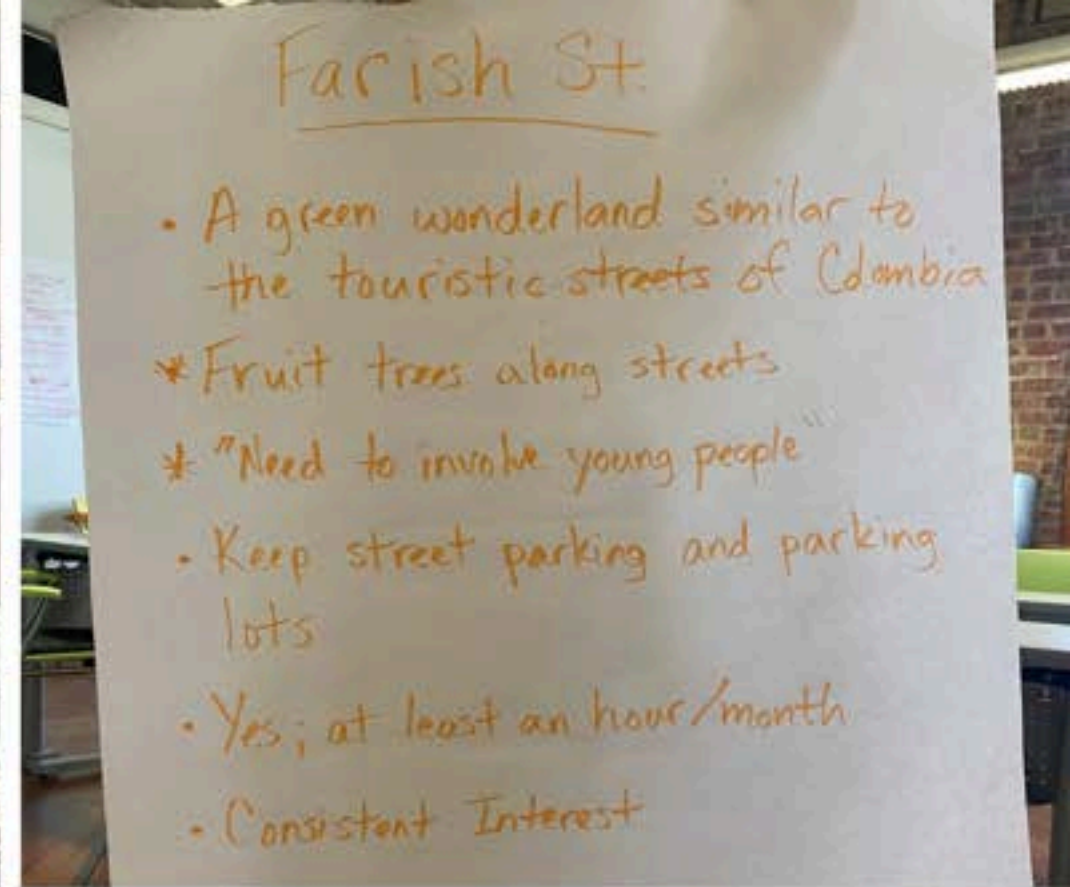 Farish St.
• A green wonderland similar to
the touristic streets of Colombia
* Fruit trees along streets
* "Need to involve young people"
• Keep street parking and parking
lots
• Yes; at least an hour/month
• Consistent Interest